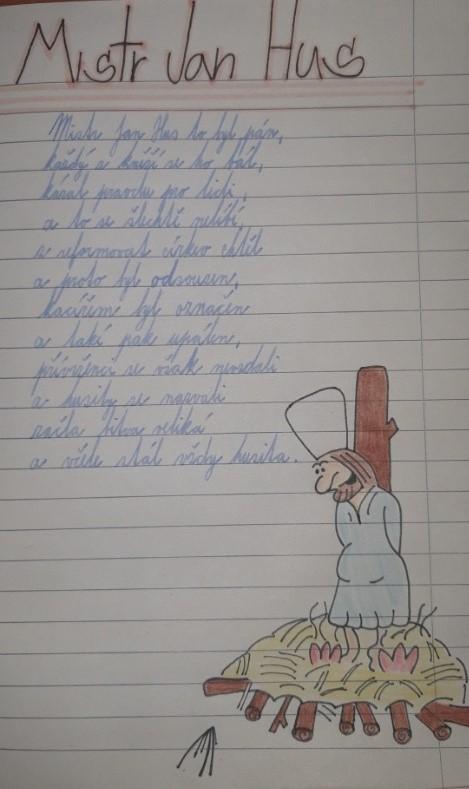 Mistr Jan Hus
Mistr Jan Hus to byl pán,
každý a kněží se ho bál,
kázal pravdu pro lidi,
a to se šlechtě nelíbí,
a reformovat církev chtěl
a proto byl odsouzen,
kacířem byl označen
a také pak upálen,
přívrženci se však nevzdali
a husity se nazvali
začla bitva veliká
a včele stál vždy husita.